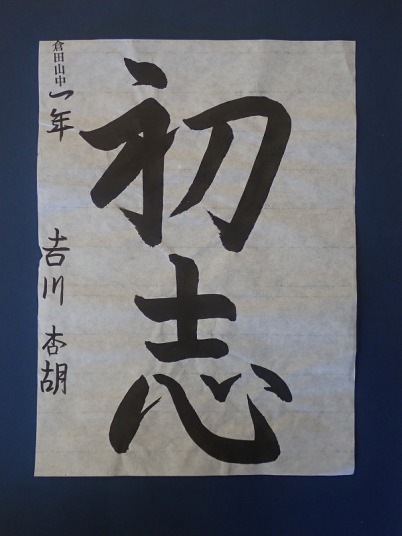 初志
倉田山中一年 吉川 杏胡